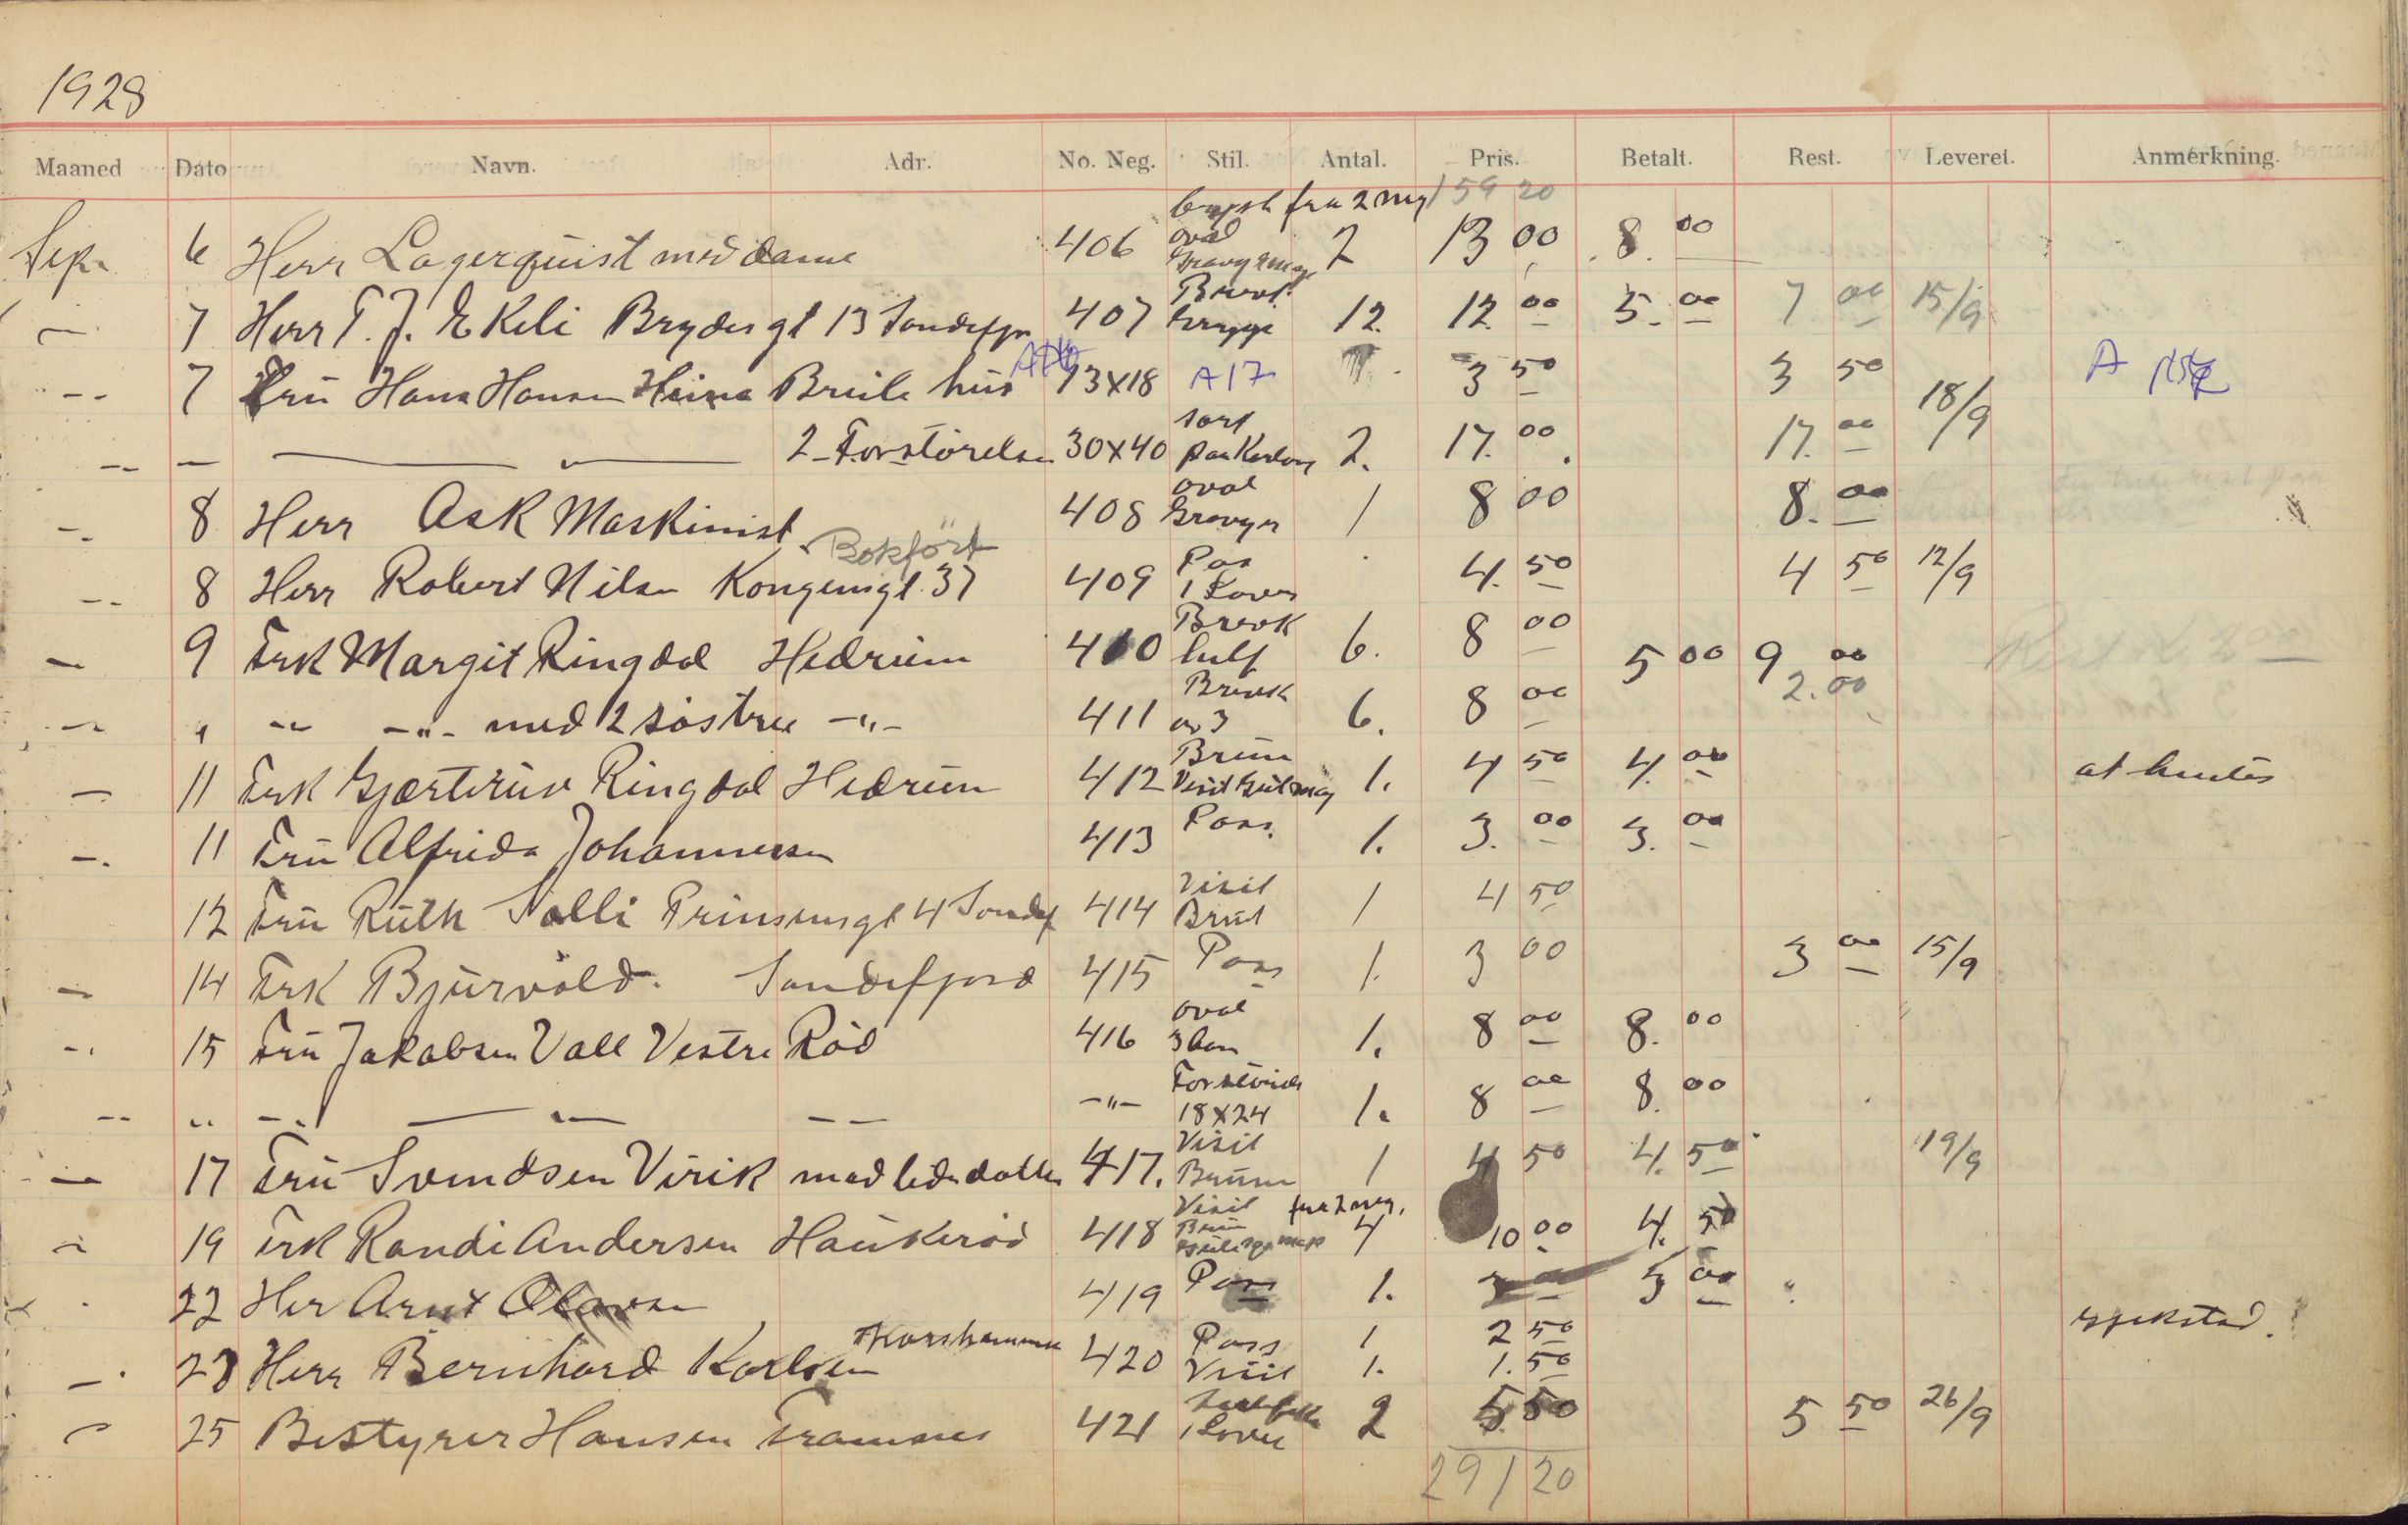 1928
Maaned Dato Navn. Adr. No. Neg. Stil. Antal. Pris. Betalt. Rest. Leveret. Anmerkning.
fra 2 neg 159 20
Sep. 6 Herr Lagerquist med dame 406 oval 2 13 00 8. 00
— 7 Herr T. J. Ekeli Brydes gt 13 Sandefjr 407 12. 12. 00 5. 00 7 00 15/9
-- 7 Fru Hans Hansen Heima hus 13x18 A17 3 50 3 50 18/9 A
-- — — 2 Forstørelser 30x40 sort 2. 17. 00 17. 00
-. 8 Herr Ask Maskinist 408 oval 1 8 00 8. 00
Bokført
-- 8 Herr Robert Nilsen Kongensgt. 37 409 Pas 4. 50 4 50 12/9
— 9 Frk Margit Ringdal Hedrum 410 Brevk 6. 8 00 5 00 9 00
2.00
-- " -- -"- med 2 søstre -"- 411 Brevk av 3 6. 8 00
— 11 Frk Ringdal Hedrum 412 Brun Visit 1. 4 50 4. 00 at hentes
-. 11 Fru Alfrida Johannessen 413 Pass. 1. 3. 00 3. 00
12 Fru Ruth Salli Prinsensgt 4 Sandef 414 Visit 1 4 50
— 14 Frk Bjurvold. Sandefjord 415 Pass 1. 3 00 3 00 15/9
-. 15 Fru Jakobsen Vall Vestre Rød 416 oval 1. 8 00 8. 00
-- " -- — -- -"- 18x24 1. 8 00 8. 00
— 17 Fru Svendsen Virik med liden datter 417. Visit Brun 1 4 50 4. 50 19/9
fra 2 neg.
19 Frk Randi Andersen Haukerød 418 Visit Brun 4 10 00 4. 50
22 Her Arnt Olavsen 419 Pass 1. 3 00 3 00
-. 23 Herr Bernhard Karlsen 420 Pass 1 2 50
Visit 1. 1.50
25 Bestyrer Hansen Framnes 421 2 5 50 5 50 26/9
291 20